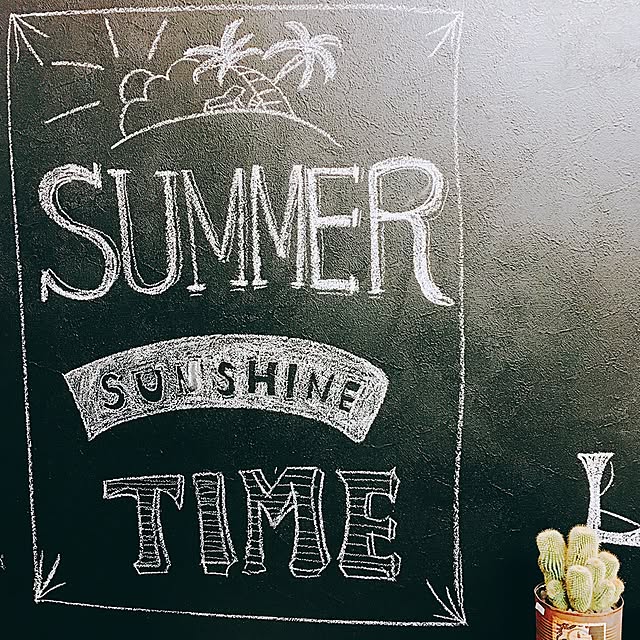 SUMMER
SUNSHINE
TIME
L